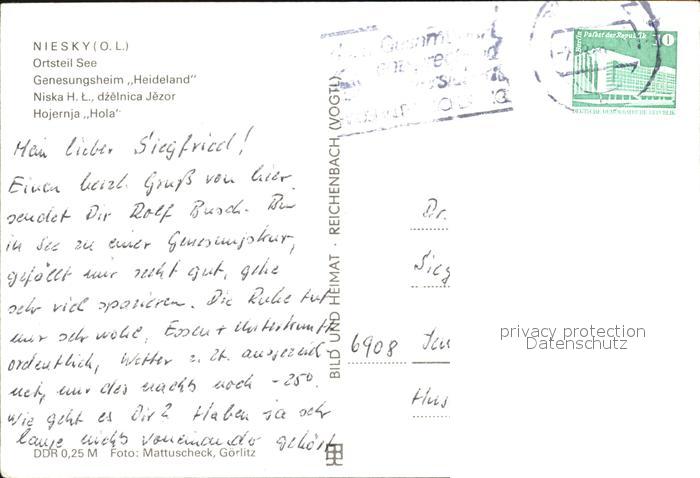 NIESKY (O. L.)
Ortsteil See
Genesungsheim „Heideland"
Niska H. Ł., dźělnica Jězor
Hojernja „Hola"
Mein lieber Siegfried!
Einen herzl. Gruß von hier
sendet Dir Rolf Busch. Bin
in See zu einer Genesungskur,
gefällt mir recht gut, gehe
sehr viel spazieren. Die Ruhe tut
mir sehr wohl, Essen + Unterkunft
ordentlich, Wetter z. Zt. ausgezeich
net, nur des nachts noch -25°.
Wie geht es Dir? Haben ja sehr
lange nichts voneinander gehört
DDR 0,25 M Foto: Mattuscheck, Görlitz
BILD UND HEIMAT · REICHENBACH (VOGTL)
Berlin Palast der Republik 10
DEUTSCHE DEMOKRATISCHE REPUBLIK
Dr.
Sieg
6908 Jen
privacy protection
Datenschutz